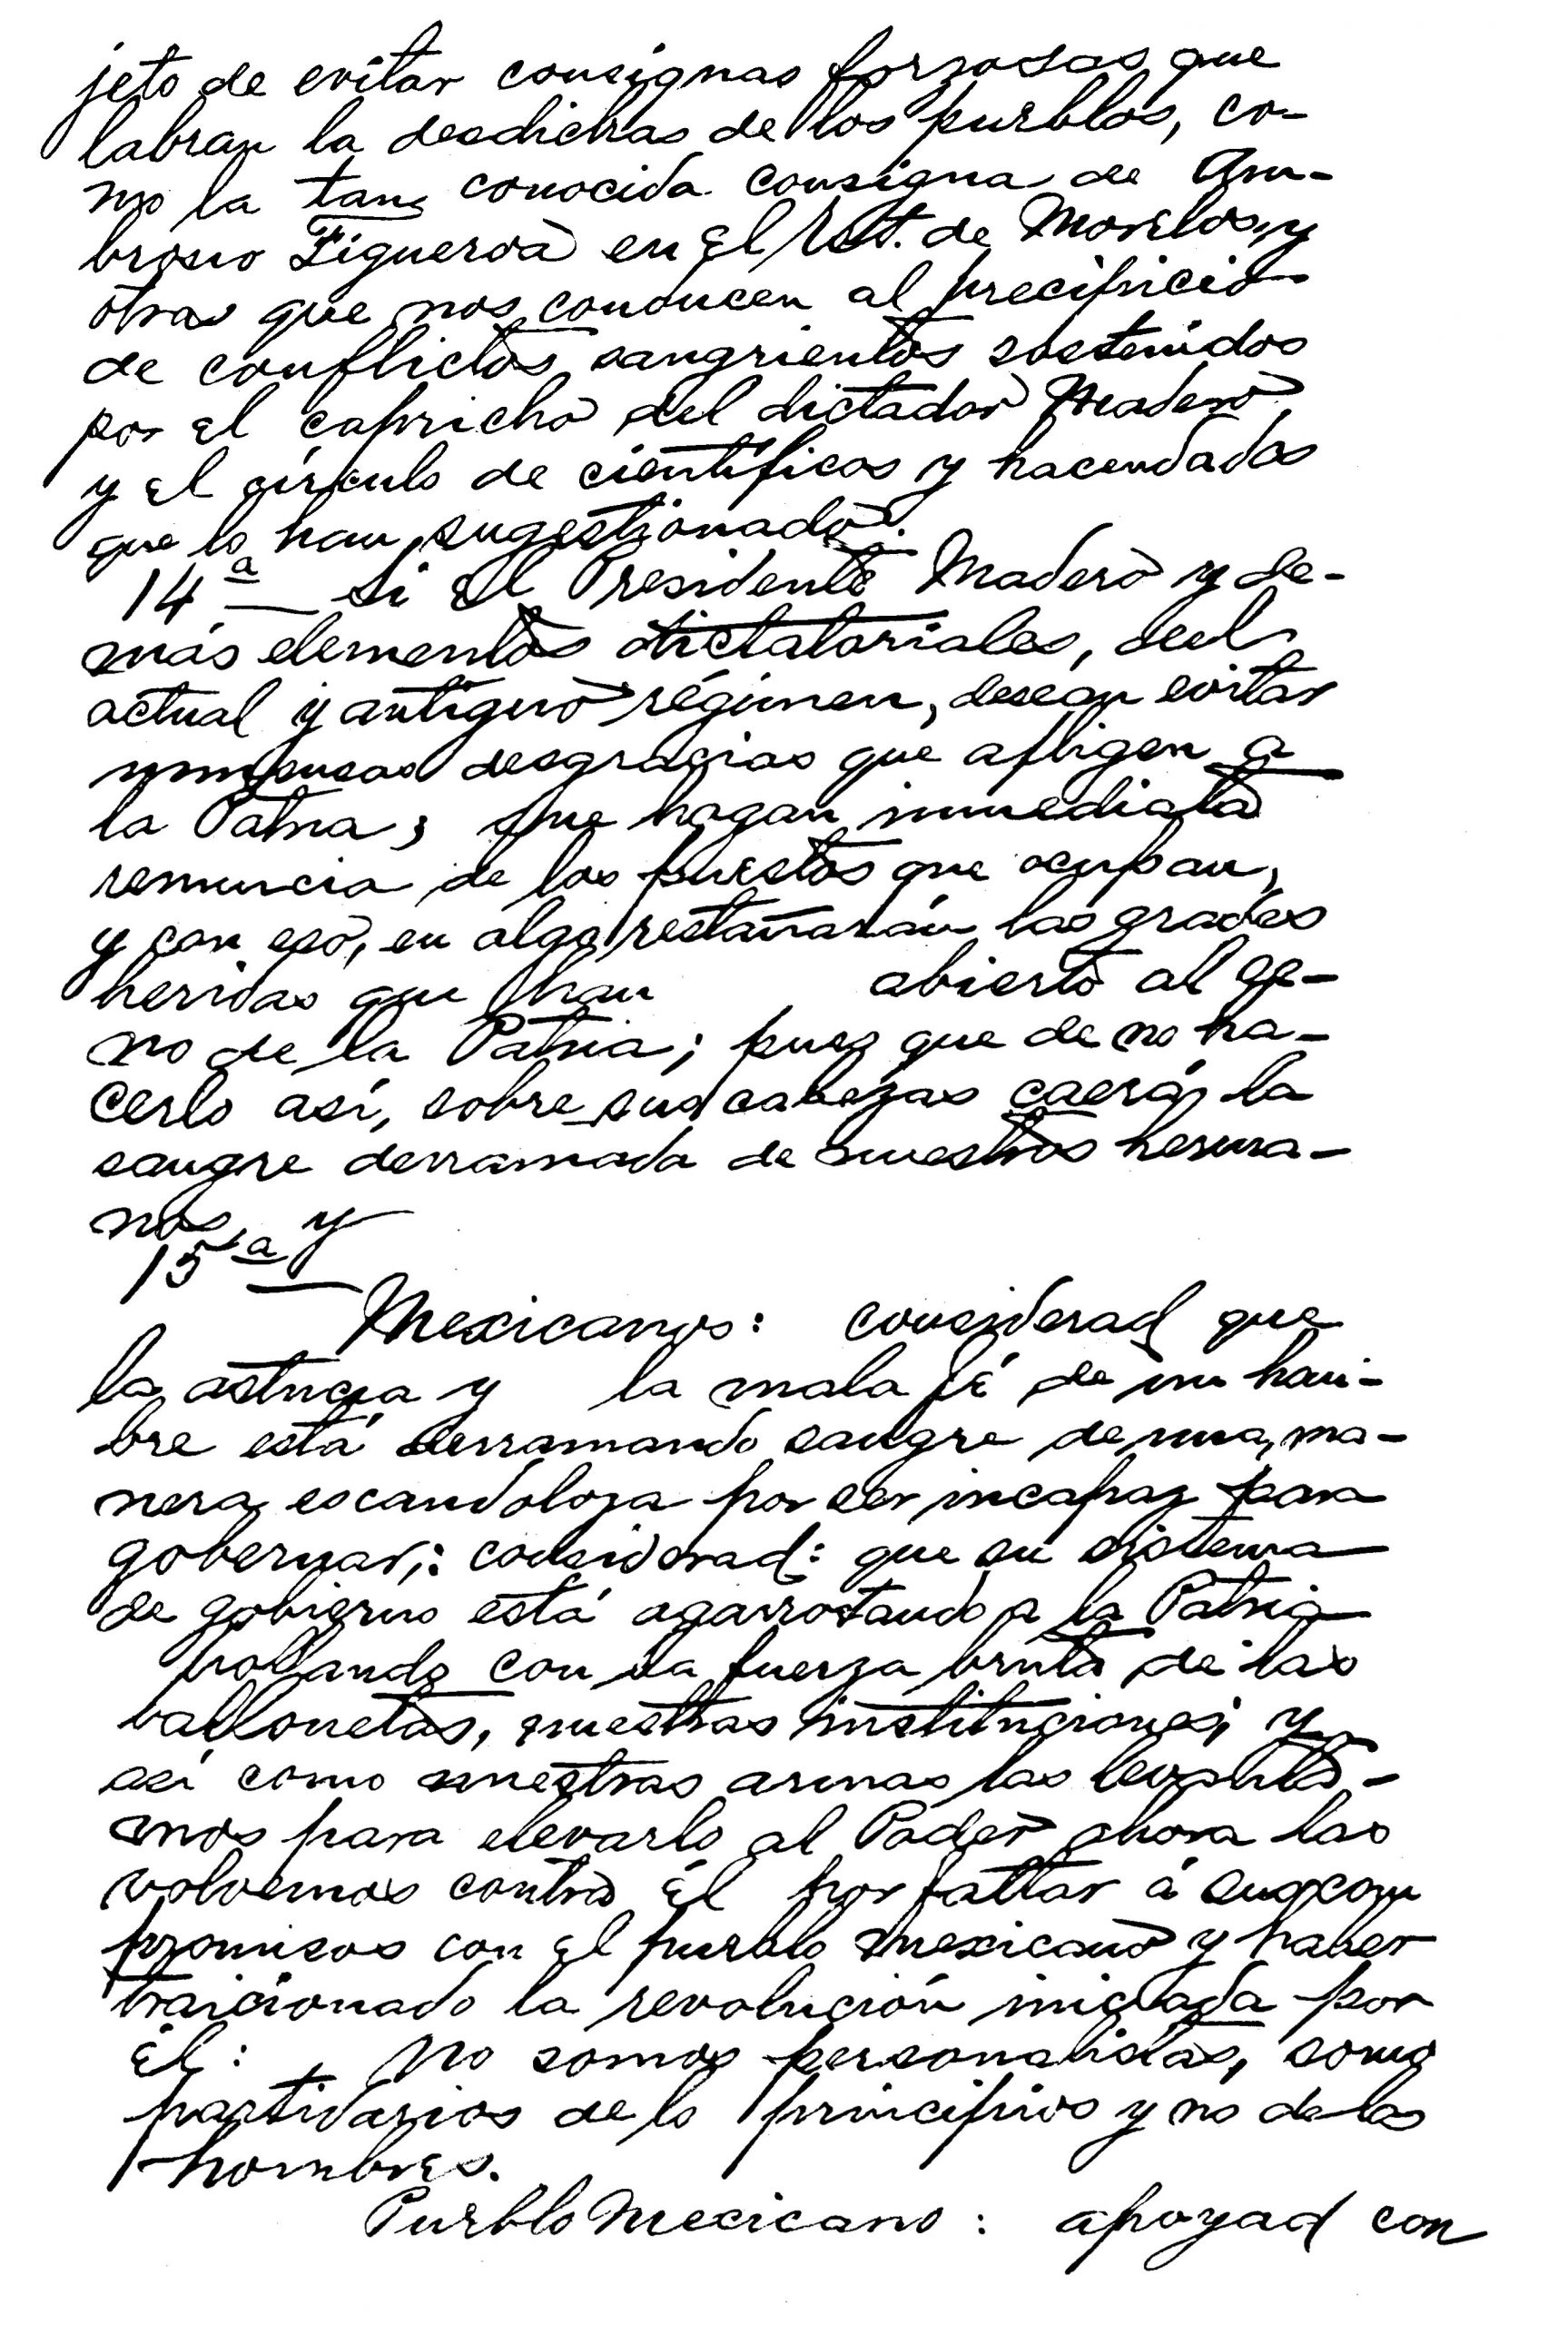 jeto de evitar consignas forzosas que
labran la desdichas de los pueblos, co-
mo la tan conocida consigna de Am-
brosio Figueroa en el Est. de Morelos, y
otras que nos conducen al precipicio
de conflictos sangrientos sostenidos
por el capricho del dictador Madero,
y el círculo de científicos y hacendados
que lo han sugestionado.
14ª — Si el Presidente Madero y de-
más elementos dictatoriales, del
actual y antiguo régimen, desean evitar
inmensas desgracias que afligen a
la Patria, que hagan inmediata
renuncia de los puestos que ocupan,
y con eso, en algo restañarán las grades
heridas que han abierto al ce-
no de la Patria; pues que de no ha-
cerlo así, sobre sus cabezas caerá la
sangre derramada de nuestros herma-
nos, y
15ª —
Mexicanos: considerad que
la astucia y la mala fé de un hom-
bre está derramando sangre de una, ma-
nera, escandoloza por ser incapaz para
gobernar,: considerad: que su sistema
de gobierno está agarrotando a la Patria
hollando con la fuerza bruta de las
ballonetas, nuestras instituciones; y
así como nuestras armas las levanta-
mos para elevarlo al Poder ahora las
volvemos contra él por faltar á sus com
promisos con el pueblo mexicano y haber
traicionado la revolución iniciada por
él: No somos personalistas, somo
partidarios de lo principios y no de los
hombres.
Pueblo Mexicano: apoyad con